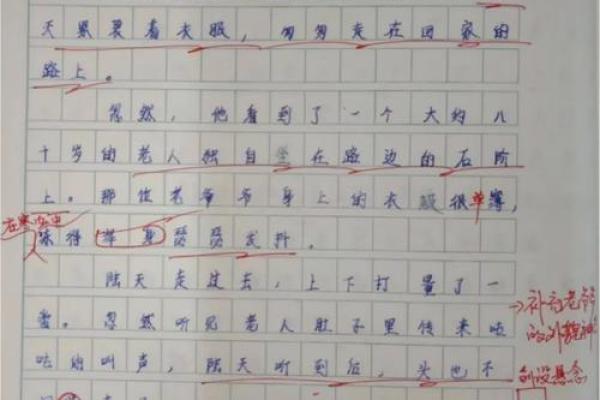 天累裹着衣服，匆匆走在回家的
路上。
忽然，他看到了一个大约八
十岁的老人独自坐在路边的石阶
上。那位老爷爷身上的衣服很单薄，
在寒风中
冻得浑身瑟瑟发抖。
陆天走过去，上下打量了一
番。忽然听见老人肚子里传来咕
咕的叫声，陆天听到后，头也不
补充老爷爷
的外貌神
创设悬念